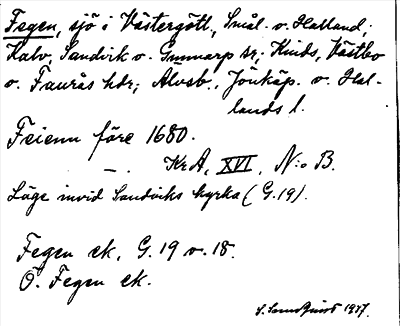 Fegen, sjö i Västergötl., Smål. o. Halland;
Kalv, Sandvik o. Gunnarp sr; Kinds, Västbo
o. Faurås hdr; Älvsb., Jönköp. o. Hal-
lands l.
Feienn före 1680.
— KrA, XVI, N:o B.
Läge invid Sandviks kyrka (G. 19).
Fegen ek. G. 19 o. 18.
Ö. Fegen ek.
1927.